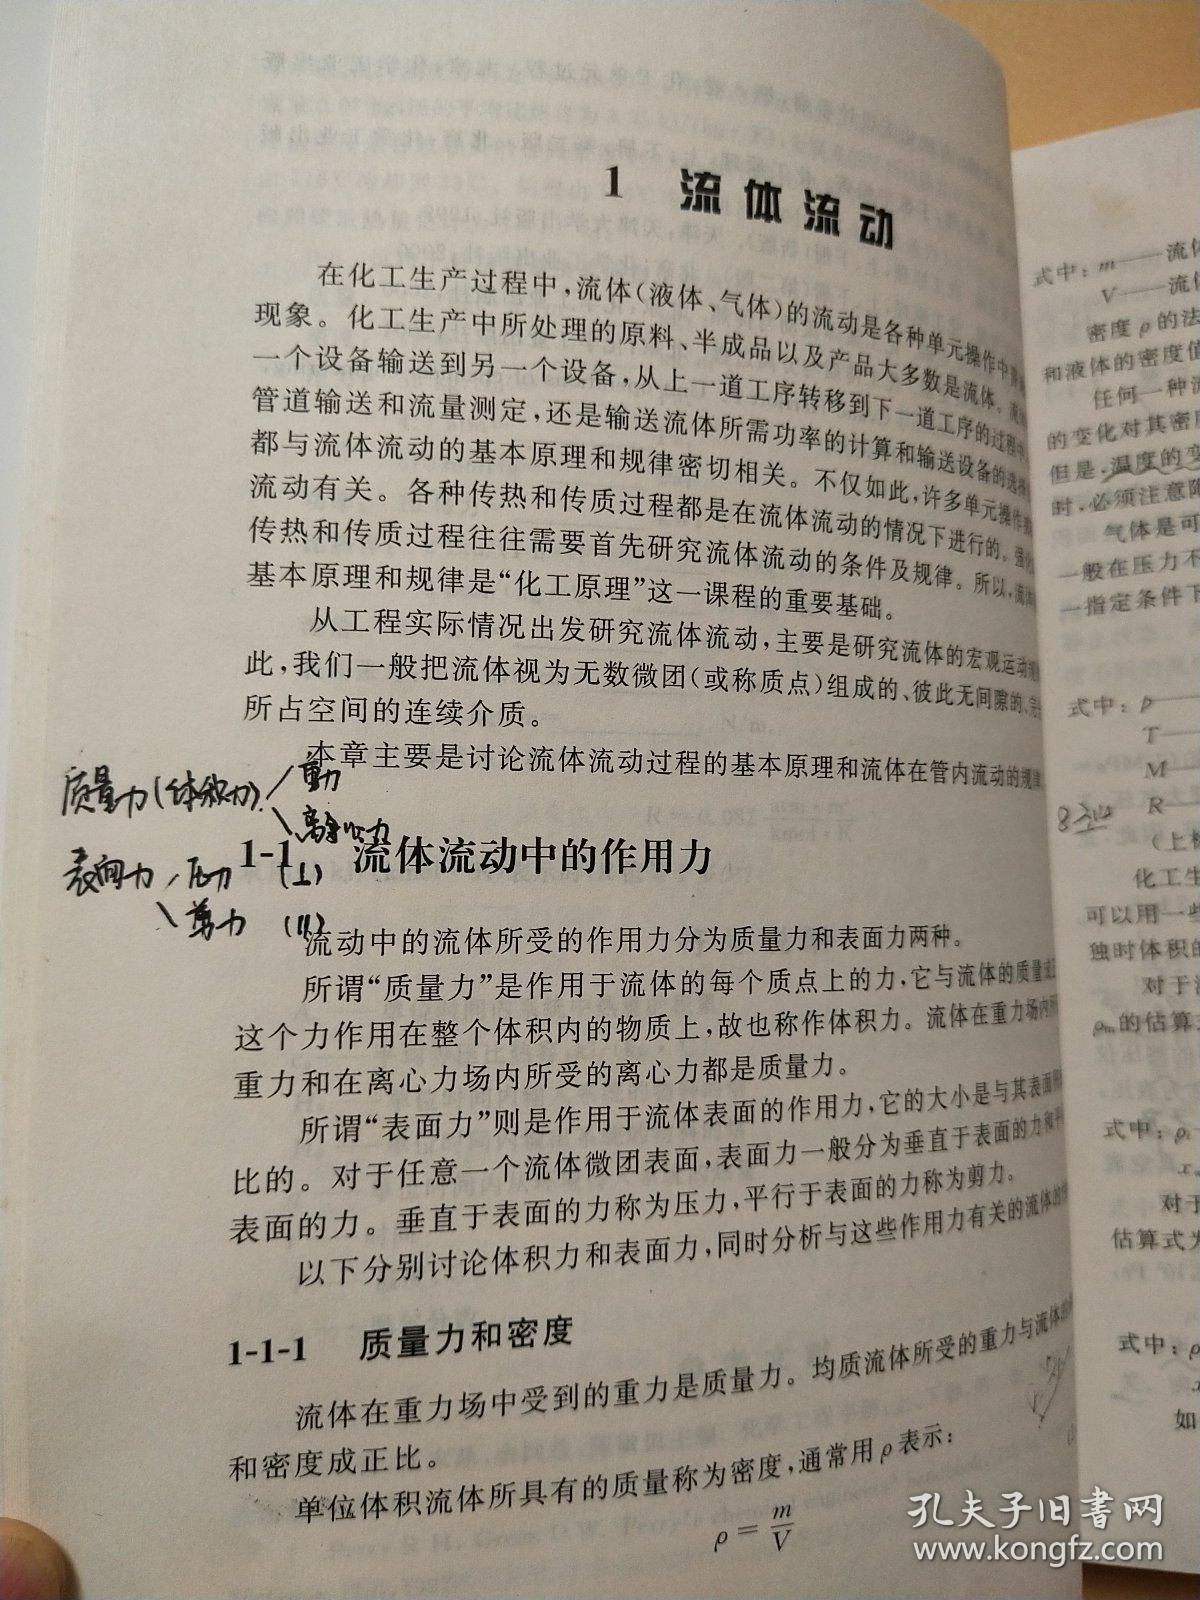 1 流体流动
在化工生产过程中,流体(液体、气体)的流动是各种单元操作中
现象。化工生产中所处理的原料、半成品以及产品大多数是流体。
一个设备输送到另一个设备,从上一道工序转移到下一道工序的过程中
管道输送和流量测定,还是输送流体所需功率的计算和输送设备的选择
都与流体流动的基本原理和规律密切相关。不仅如此,许多单元操作
流动有关。各种传热和传质过程都是在流体流动的情况下进行的。强化
传热和传质过程往往需要首先研究流体流动的条件及规律。所以,流体
基本原理和规律是“化工原理”这一课程的重要基础。
从工程实际情况出发研究流体流动,主要是研究流体的宏观运动
此,我们一般把流体视为无数微团(或称质点)组成的、彼此无间隙的、
所占空间的连续介质。
本章主要是讨论流体流动过程的基本原理和流体在管内流动的规律
质量力(体积力) 重力
离心力
表面力 压力 (⊥)
剪力 (∥)
1-1 流体流动中的作用力
流动中的流体所受的作用力分为质量力和表面力两种。
所谓“质量力”是作用于流体的每个质点上的力,它与流体的质量
这个力作用在整个体积内的物质上,故也称作体积力。流体在重力场内
重力和在离心力场内所受的离心力都是质量力。
所谓“表面力”则是作用于流体表面的作用力,它的大小是与其表面
比的。对于任意一个流体微团表面,表面力一般分为垂直于表面的力和
表面的力。垂直于表面的力称为压力,平行于表面的力称为剪力。
以下分别讨论体积力和表面力,同时分析与这些作用力有关的流体的
1-1-1 质量力和密度
流体在重力场中受到的重力是质量力。均质流体所受的重力与流体的
和密度成正比。
单位体积流体所具有的质量称为密度,通常用ρ表示:
ρ = m/V
式中: m——流体
V——流体
密度ρ的法
和液体的密度值
任何一种流
的变化对其密度
但是,温度的变
时,必须注意
气体是可
一般在压力不
一指定条件下
式中: p——
T——
M——
R——
(上标
化工生
可以用一些
独时体积的
对于
ρm的估算
式中: ρ
x
对于
估算式为
式中: ρ
如
孔夫子旧书网
www.kongfz.com